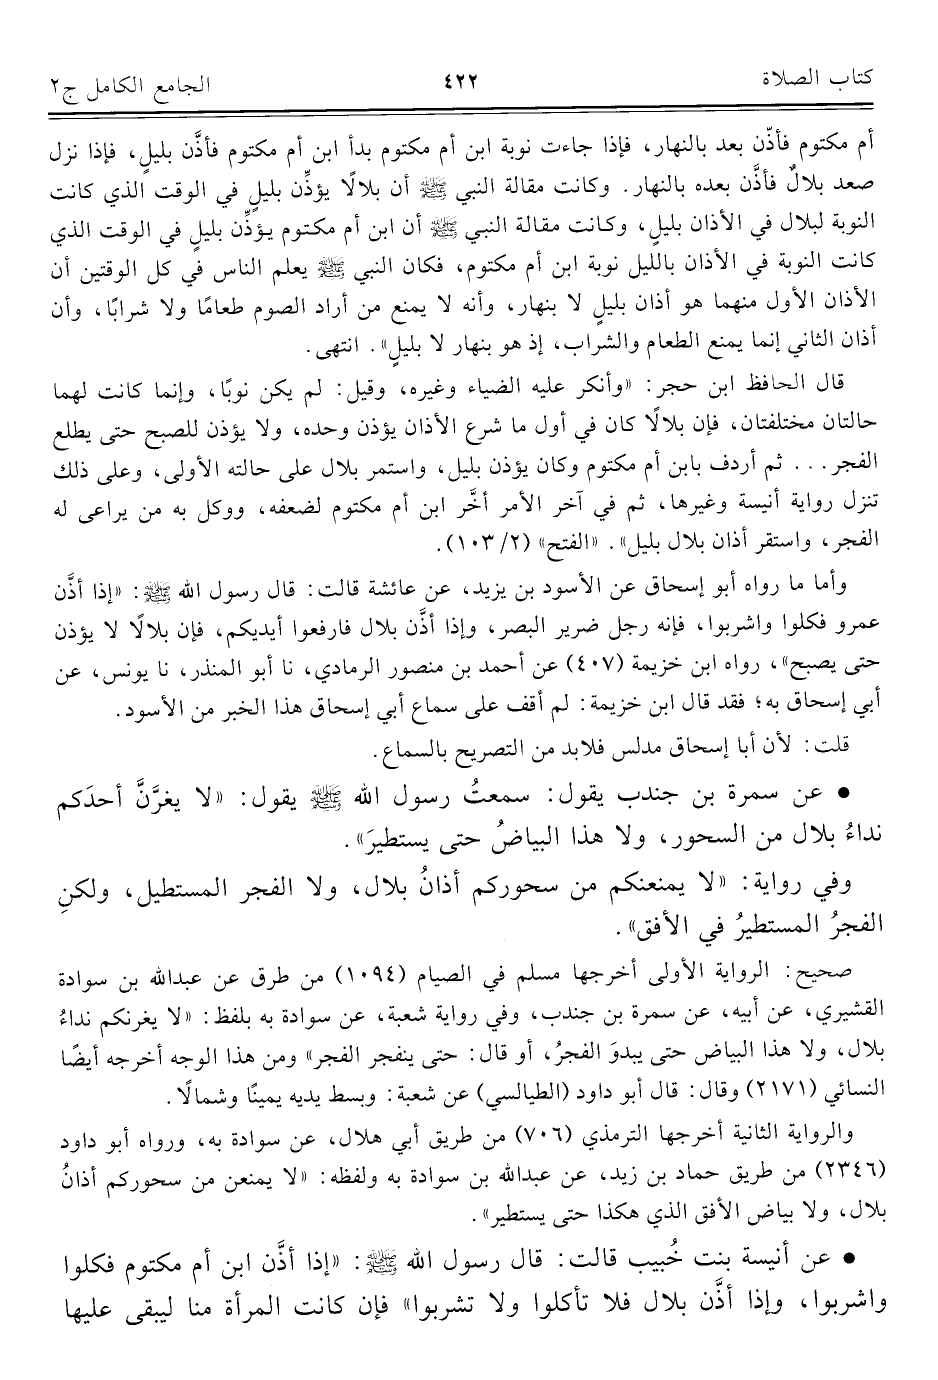 كتاب الصلاة ٤٢٢ الجامع الكامل ج٢
أم مكتوم فأذّن بعد بالنهار، فإذا جاءت نوبة ابن أم مكتوم بدأ ابن أم مكتوم فأذَّن بليلٍ، فإذا نزل
صعد بلالٌ فأذَّن بعده بالنهار. وكانت مقالة النبي ﷺ أن بلالًا يؤذِّن بليلٍ في الوقت الذي كانت
النوبة لبلال في الأذان بليلٍ، وكانت مقالة النبي ﷺ أن ابن أم مكتوم يؤذِّن بليلٍ في الوقت الذي
كانت النوبة في الأذان بالليل نوبة ابن أم مكتوم، فكان النبي ﷺ يعلم الناس في كل الوقتين أن
الأذان الأول منهما هو أذان بليلٍ لا بنهار، وأنه لا يمنع من أراد الصوم طعامًا ولا شرابًا، وأن
أذان الثاني إنما يمنع الطعام والشراب، إذ هو بنهار لا بليلٍ». انتهى.
قال الحافظ ابن حجر: «وأنكر عليه الضياء وغيره، وقيل: لم يكن نوبًا، وإنما كانت لهما
حالتان مختلفتان، فإن بلالًا كان في أول ما شرع الأذان يؤذن وحده، ولا يؤذن للصبح حتى يطلع
الفجر... ثم أردف بابن أم مكتوم وكان يؤذن بليل، واستمر بلال على حالته الأولى، وعلى ذلك
تنزل رواية أنيسة وغيرها، ثم في آخر الأمر أخَّر ابن أم مكتوم لضعفه، ووكل به من يراعى له
الفجر، واستقر أذان بلال بليل». «الفتح» (٢/ ١٠٣).
وأما ما رواه أبو إسحاق عن الأسود بن يزيد، عن عائشة قالت: قال رسول الله ﷺ: «إذا أذَّن
عمرو فكلوا واشربوا، فإنه رجل ضرير البصر، وإذا أذَّن بلال فارفعوا أيديكم، فإن بلالًا لا يؤذن
حتى يصبح»، رواه ابن خزيمة (٤٠٧) عن أحمد بن منصور الرمادي، نا أبو المنذر، نا يونس، عن
أبي إسحاق به؛ فقد قال ابن خزيمة: لم أقف على سماع أبي إسحاق هذا الخبر من الأسود.
قلت: لأن أبا إسحاق مدلس فلابد من التصريح بالسماع.
• عن سمرة بن جندب يقول: سمعتُ رسول الله ﷺ يقول: «لا يغرَّنَّ أحدَكم
نداءُ بلال من السحور، ولا هذا البياضُ حتى يستطيرَ».
وفي رواية: «لا يمنعنكم من سحوركم أذانُ بلال، ولا الفجر المستطيل، ولكنِ
الفجرُ المستطيرُ في الأفق».
صحيح: الرواية الأولى أخرجها مسلم في الصيام (١٠٩٤) من طرق عن عبدالله بن سوادة
القشيري، عن أبيه، عن سمرة بن جندب، وفي رواية شعبة، عن سوادة به بلفظ: «لا يغرنكم نداءُ
بلال، ولا هذا البياض حتى يبدوَ الفجرُ، أو قال: حتى ينفجر الفجر» ومن هذا الوجه أخرجه أيضًا
النسائي (٢١٧١) وقال: قال أبو داود (الطيالسي) عن شعبة: وبسط يديه يمينًا وشمالًا.
والرواية الثانية أخرجها الترمذي (٧٠٦) من طريق أبي هلال، عن سوادة به، ورواه أبو داود
(٢٣٤٦) من طريق حماد بن زيد، عن عبدالله بن سوادة به ولفظه: «لا يمنعن من سحوركم أذانُ
بلال، ولا بياض الأفق الذي هكذا حتى يستطير».
• عن أنيسة بنت خُبيب قالت: قال رسول الله ﷺ: «إذا أذَّن ابن أم مكتوم فكلوا
واشربوا، وإذا أذَّن بلال فلا تأكلوا ولا تشربوا» فإن كانت المرأة منا ليبقى عليها